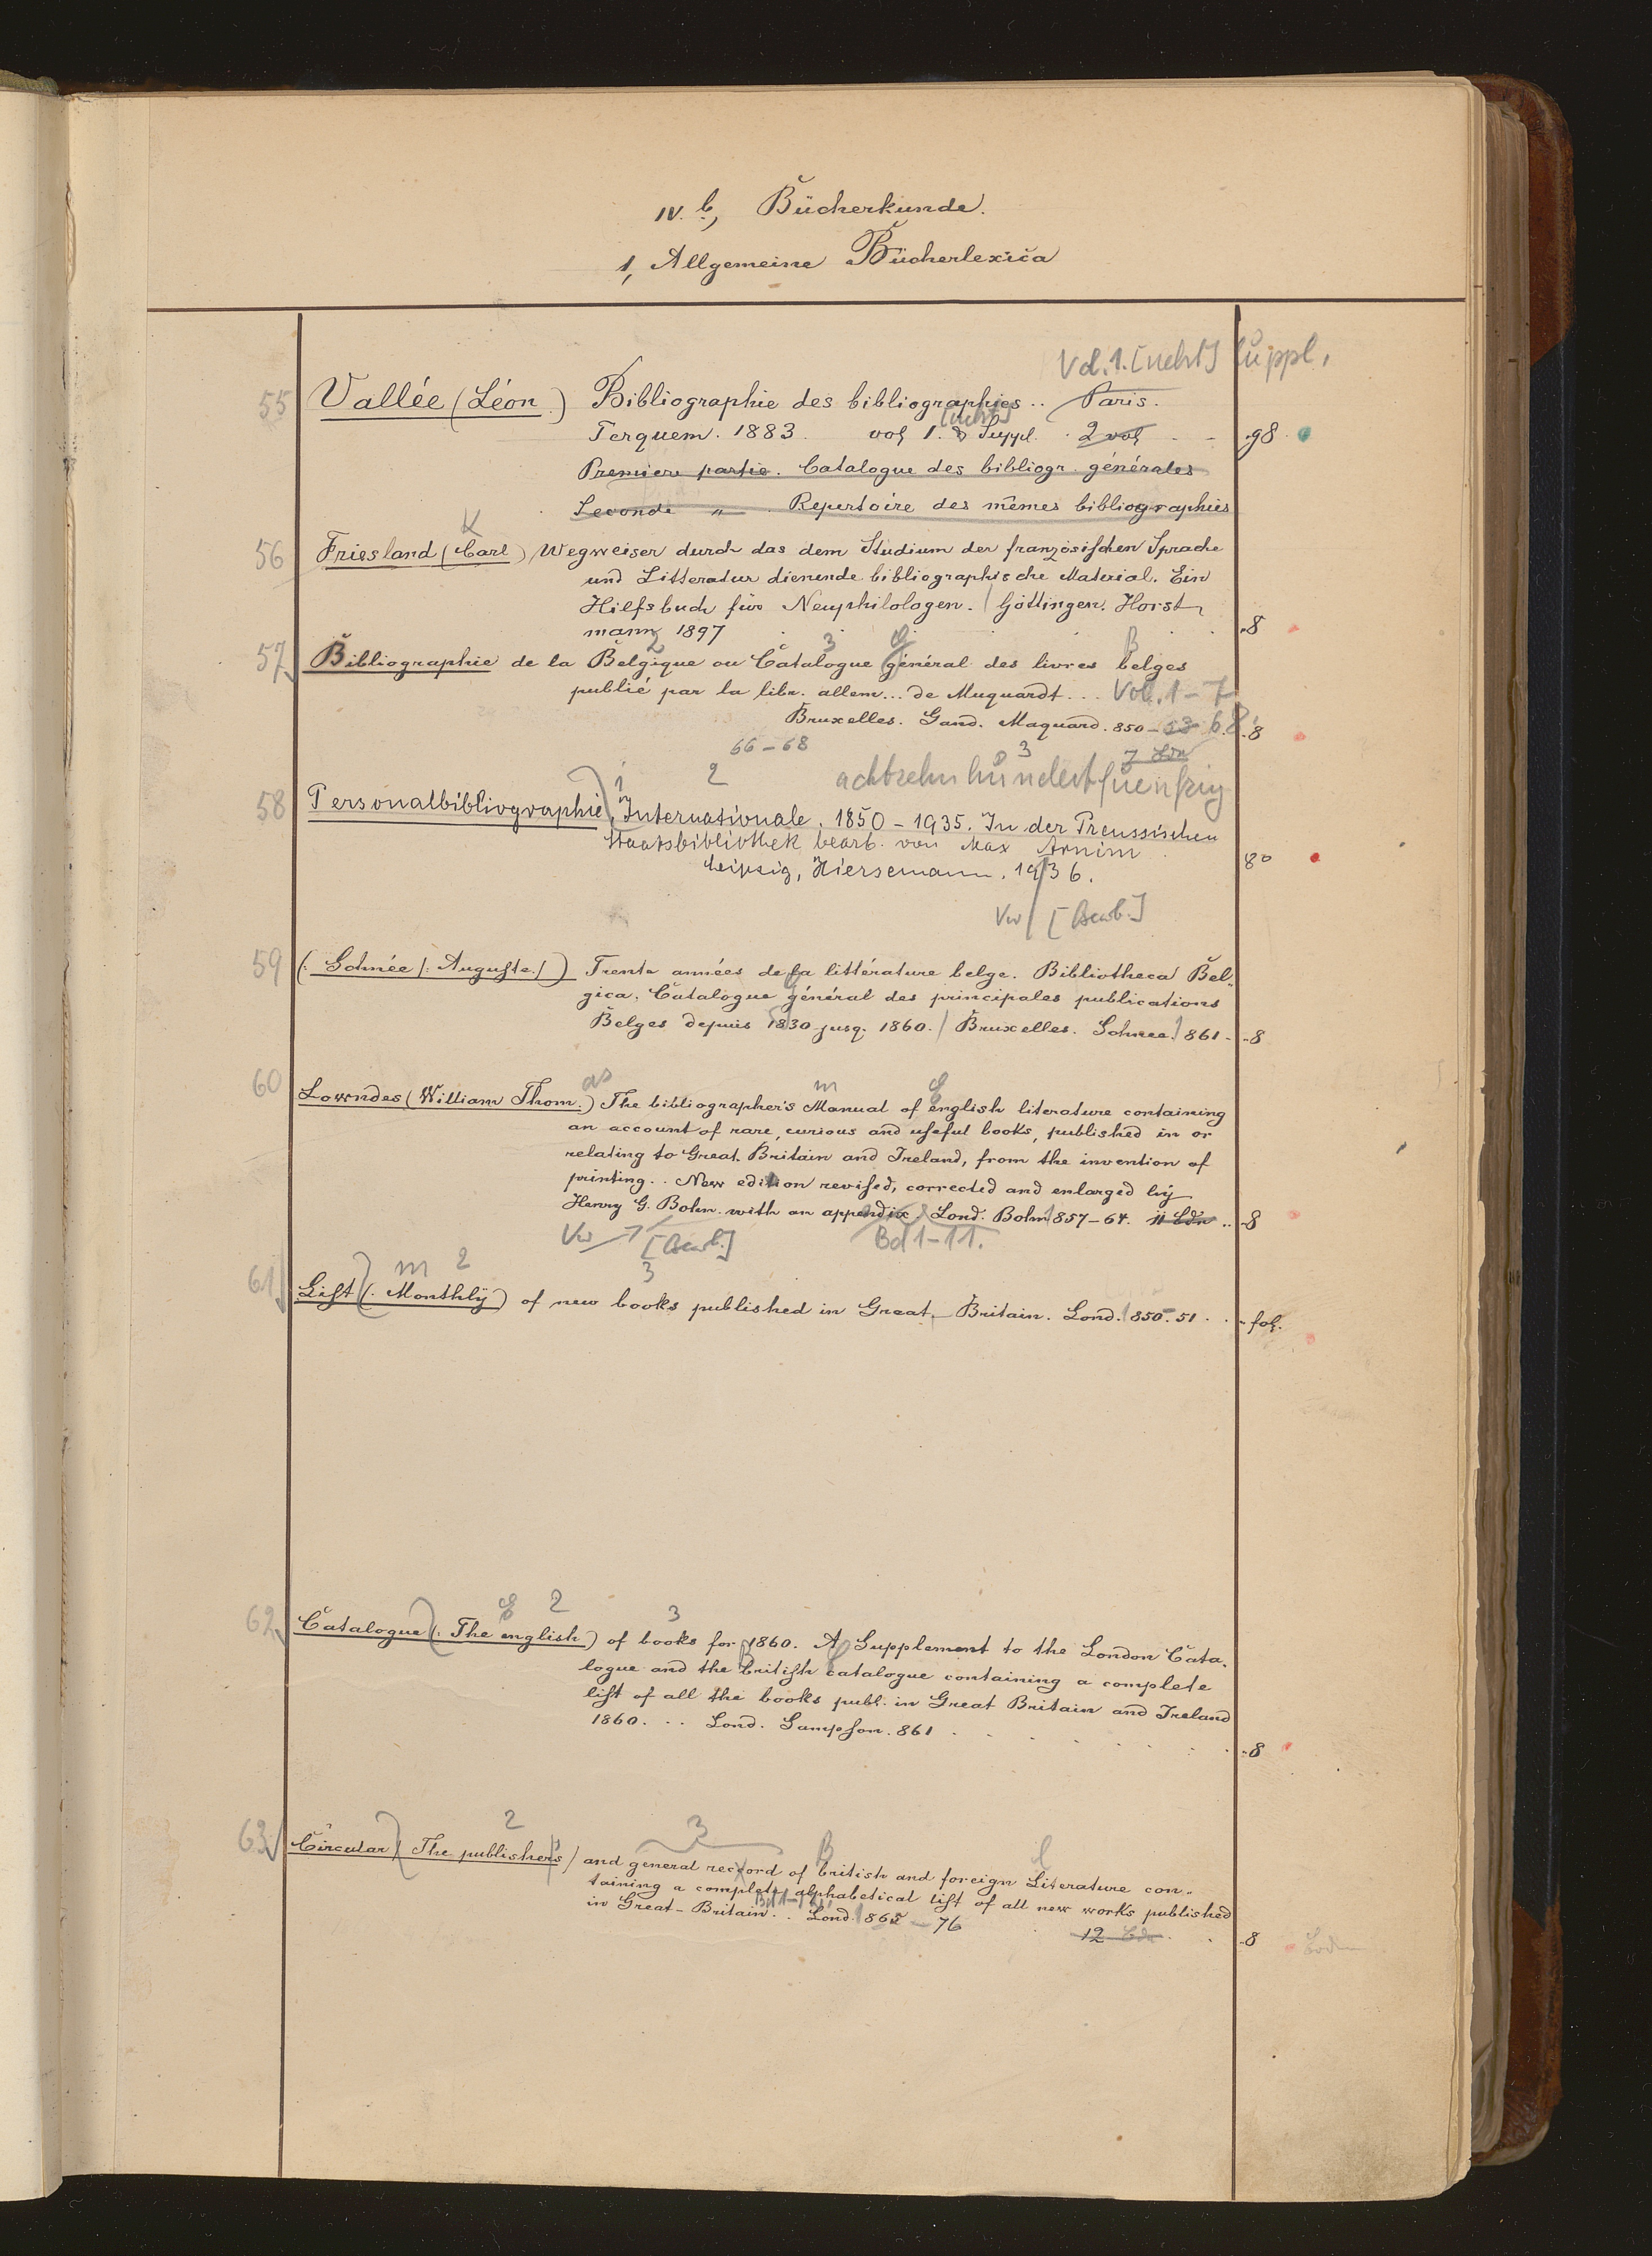 IV. b, Bücherkunde.
1, Allgemeine Bücherlexica
Vol. 1. [nebst] Suppl.
55 Vallée (Léon.) Bibliographie des bibliographies .. Paris.
[nebst]
Terquem. 1883. vol 1. & Suppl. 2 vol - - .g8.
Premiere partie. Catalogue des bibliogr. générales
Seconde " Repertoire des mêmes bibliographies
K
56 Friesland (Carl) Wegweiser durch das dem Studium der französischen Sprache
und Litteratur dienende bibliographische Material. Ein
Hilfsbuch für Neuphilologen. / Göttingen. Horst
mann 1897 . . . . . .8
2 3 G B
57 Bibliographie de la Belgique ou Catalogue général des livres belges
publié par la libr. allem... de Muquardt... Vol. 1-7
Bruxelles. Gand. Maquard. 850-53 68. .8
66-68 3 7 Bde
1 2 achtzehnhundertfuenfzig
58 Personalbibliographie, Internationale. 1850-1935. In der Preussischen
Staatsbibliothek bearb. von Max Arnim
Leipzig, Hiersemann. 1936. 8°
Vw [Bearb.]
59 (: Schnée /: Auguste /) Trente années de la littérature belge. Bibliotheca Bel-
gica. Catalogue général des principales publications
Belges depuis 1830 jusq. 1860. / Bruxelles. Schnee. 861 - -8
as m E
60 Lowndes (William Thom.) The bibliographer's Manual of english literature containing
an account of rare, curious and useful books, published in or
relating to Great. Britain and Ireland, from the invention of
printing.. New edition revised, corrected and enlarged by
Henry G. Bohn. with an appendix. Lond. Bohn 1857-64. 11 Bde .. -8
Vw [Bearb.] Bd 1-11.
m 2 3
61 List (. Monthly) of new books published in Great-Britain. Lond. 1850-51 . . - fol.
E 2 3
62 Catalogue (: The english) of books for 1860. A Supplement to the London Cata-
logue and the british catalogue containing a complete
list of all the books publ. in Great Britain and Ireland
1860. .. Lond. Sampson. 861 . . . . . . . -8
2 3 B l
63 Circular / The publishers / and general record of british and foreign Literature con-
taining a complete alphabetical list of all new works published
in Great-Britain.. Lond. 1865-76
12 Bde . -8